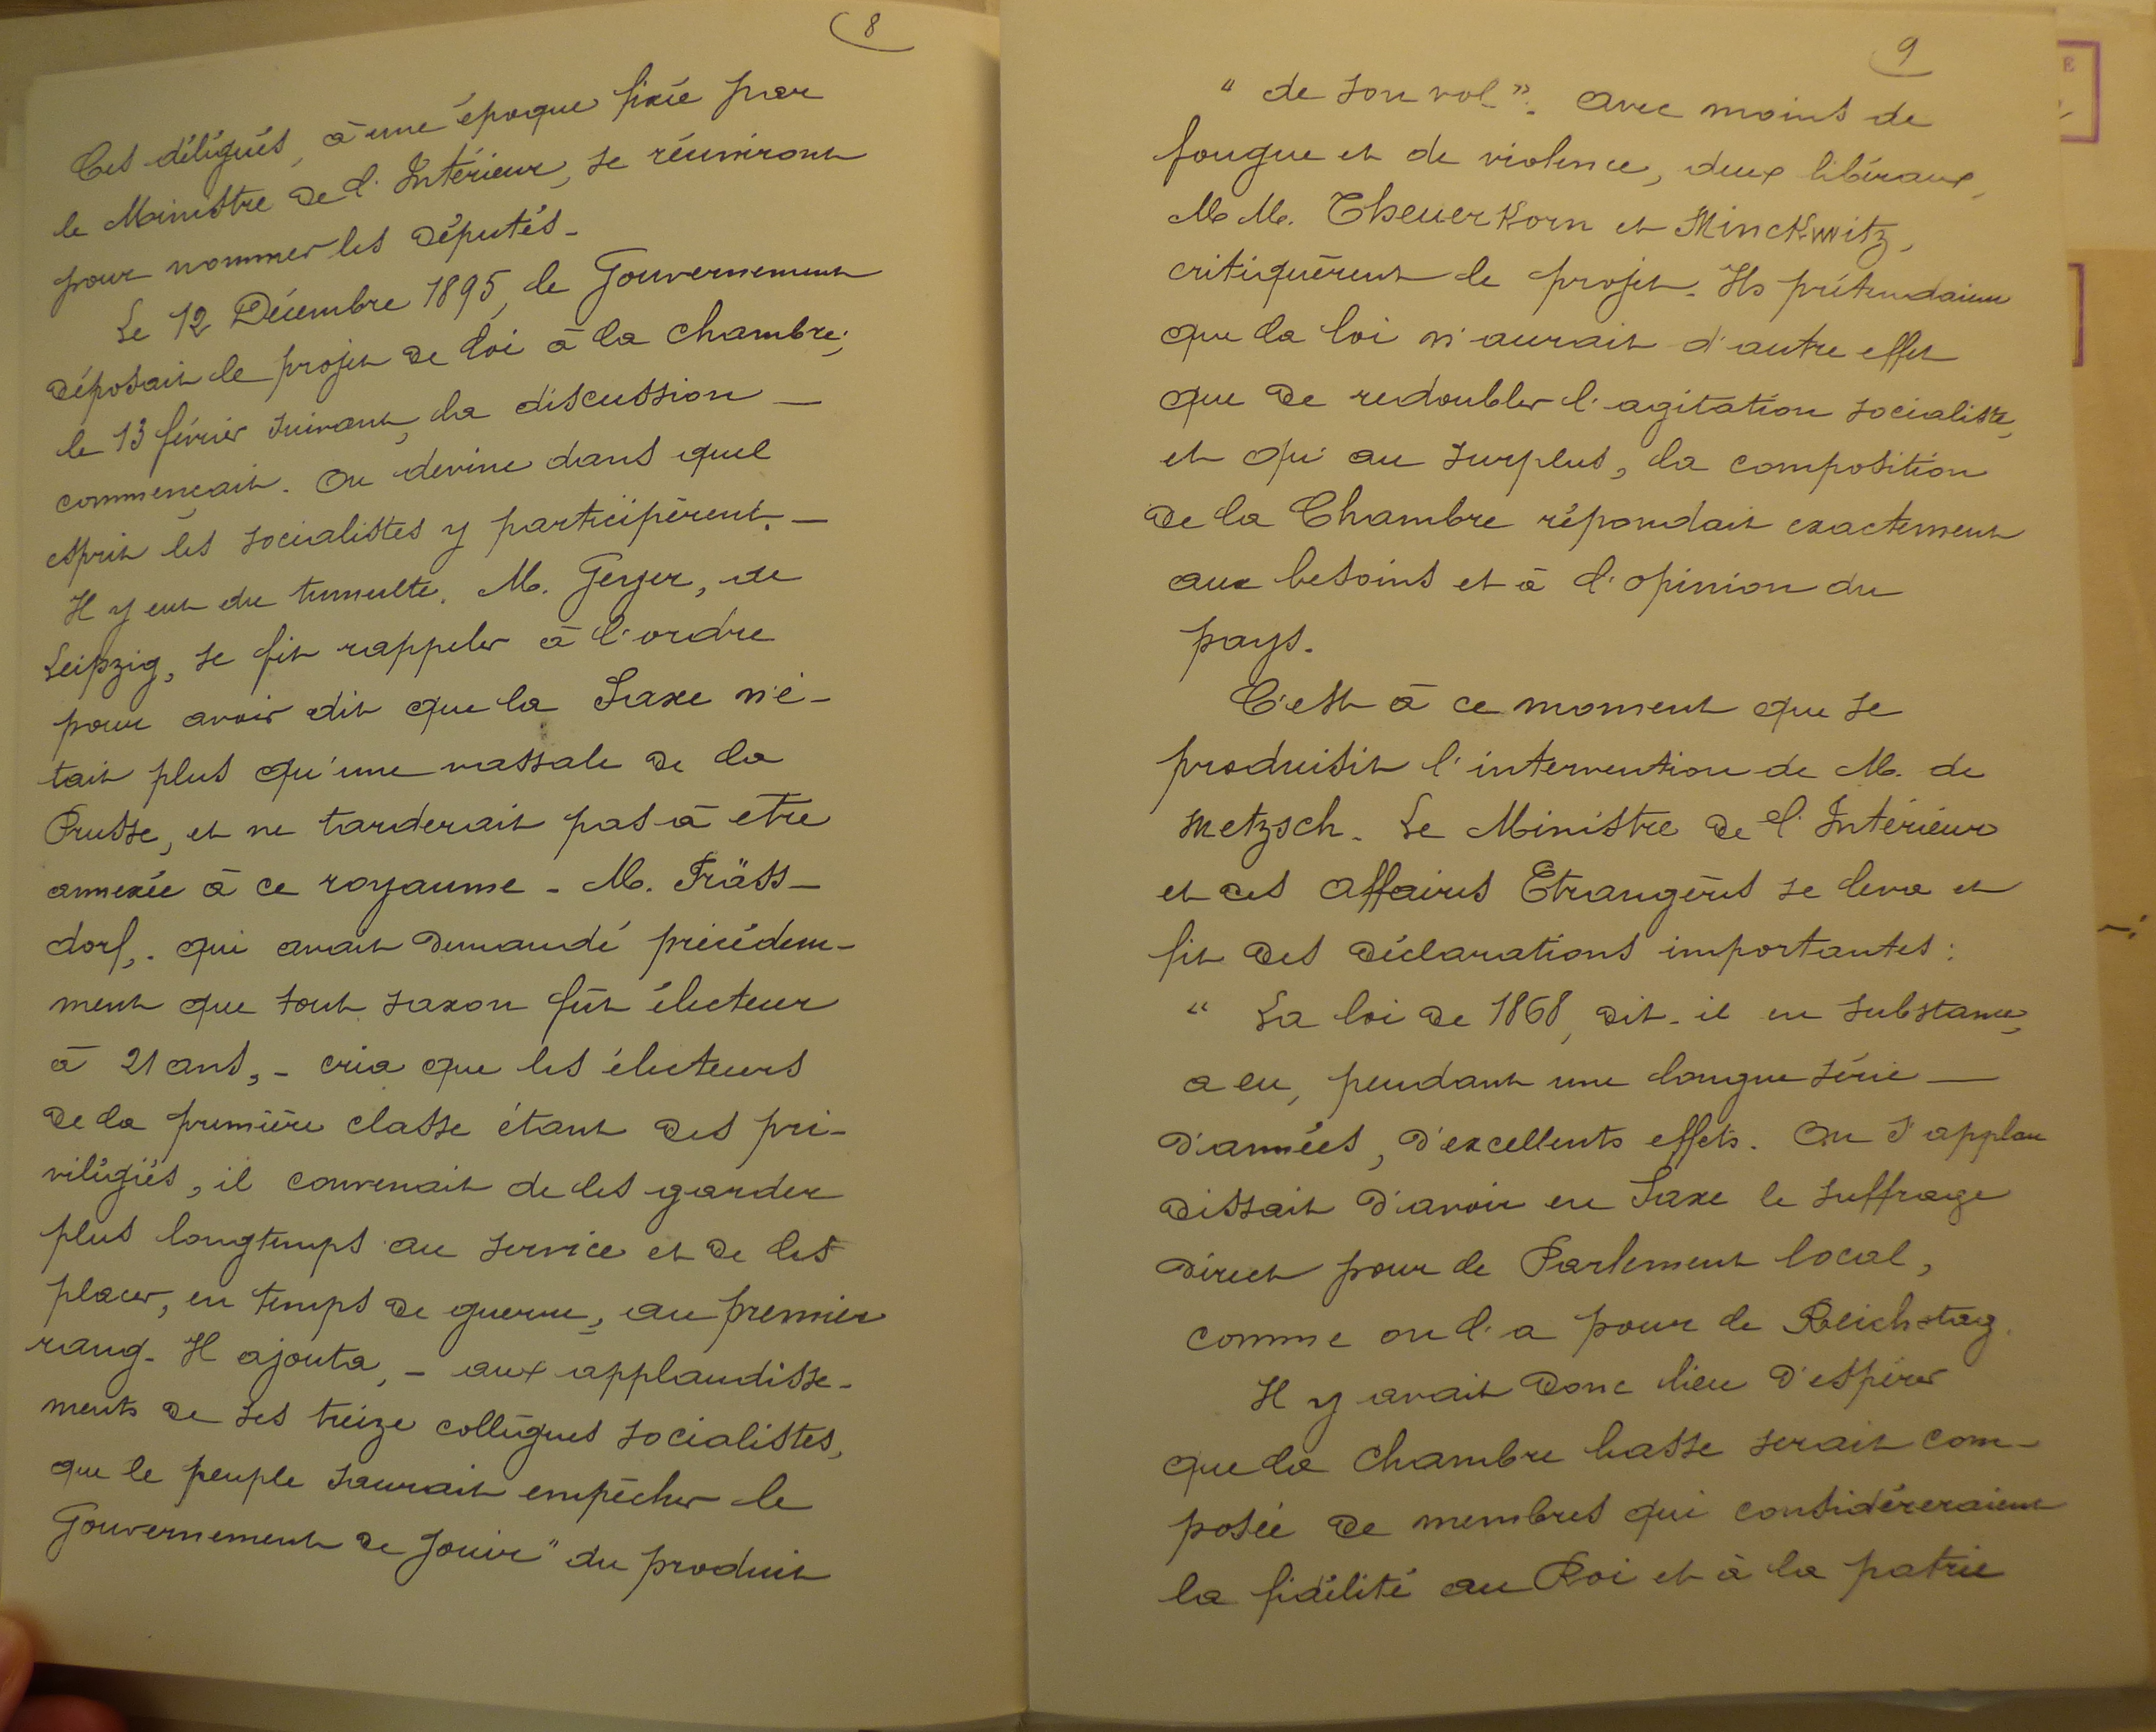 8
Ces délégués, à une époque fixée par
le Ministre de l'Intérieur, se réuniront
pour nommer les députés.
Le 12 Décembre 1895, le Gouvernement
déposait le projet de loi à la Chambre;
le 13 février suivant, la discussion —
commençait. On devine dans quel
esprit les socialistes y participèrent. —
Il y eut du tumulte. M. Geyer, de
Leipzig, se fit rappeler à l'ordre
pour avoir dit que la Saxe n'é-
tait plus qu'une vassale de la
Prusse, et ne tarderait pas à être
annexée à ce royaume. M. Fräss-
dorf, . qui avait demandé précédem-
ment que tout saxon fût électeur
à 21 ans, - cria que les électeurs
de la première classe étant des pri-
vilégiés, il convenait de les garder
plus longtemps au service et de les
placer, en temps de guerre, au premier
rang. Il ajouta, - aux applaudisse-
ments de ses treize collègues socialistes,
que le peuple saurait empêcher le
Gouvernement de jouir "du produit
9
"de son vol". Avec moins de
fougue et de violence, deux libéraux,
M.M. Theuerkorn et Minckwitz,
critiquèrent le projet. Ils prétendaient
que la loi n'aurait d'autre effet
que de redoubler l'agitation socialiste,
et qu'au surplus, la composition
de la Chambre répondait exactement
aux besoins et à l'opinion du
pays.
C'est à ce moment que se
produisit l'intervention de M. de
Metzsch. Le Ministre de l'Intérieur
et des Affaires Etrangères se leva et
fit des déclarations importantes:
" La loi de 1868, dit-il en substance,
a eu, pendant une longue série —
d'années, d'excellents effets. On s'applau
dissait d'avoir en Saxe le suffrage
direct pour le Parlement local,
comme on l'a pour le Reichstag.
Il y avait donc lieu d'espérer
que la Chambre basse serait com-
posée de membres qui considéreraient
la fidélité au Roi et à la patrie